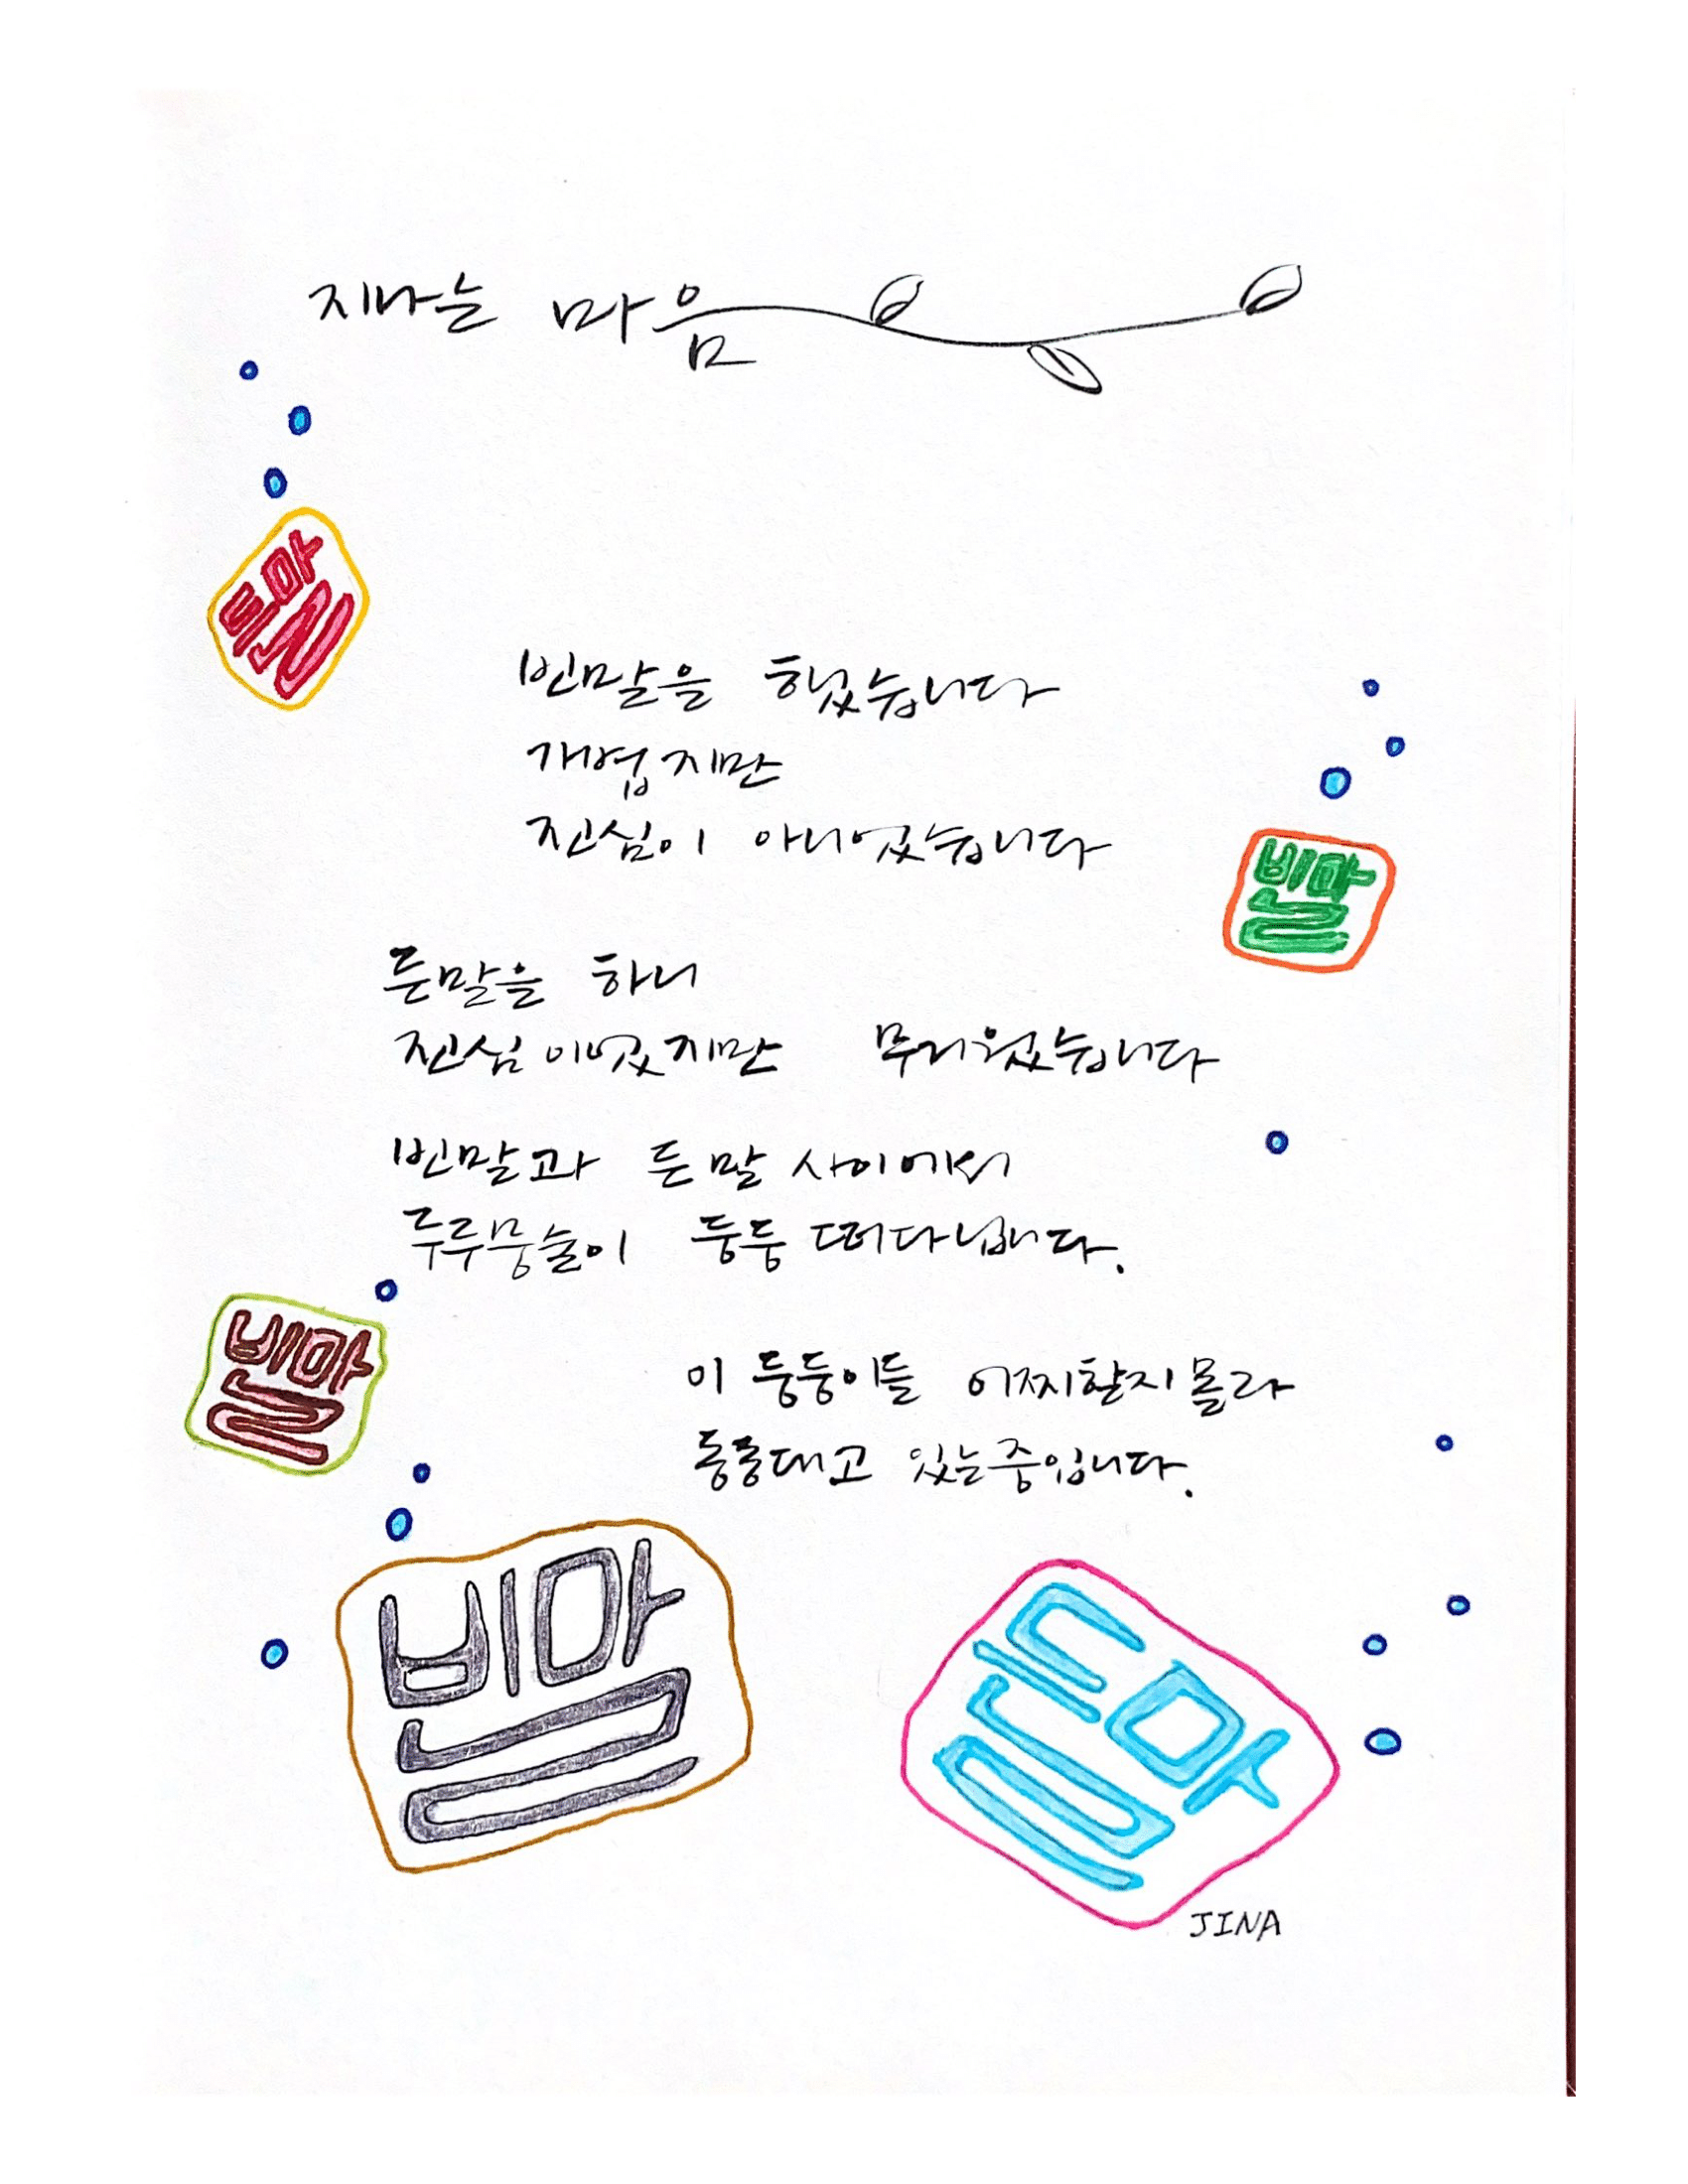 지나는 마음
든말
빈말을 했습니다
가볍지만
진심이 아니었습니다
빈말
든말을 하니
진심이었지만 무거웠습니다
빈말과 든말 사이에서
두루뭉술이 둥둥 떠다닙니다.
빈말
이 둥둥이들 어찌할지 몰라
동동대고 있는중입니다.
빈말
든말
JINA